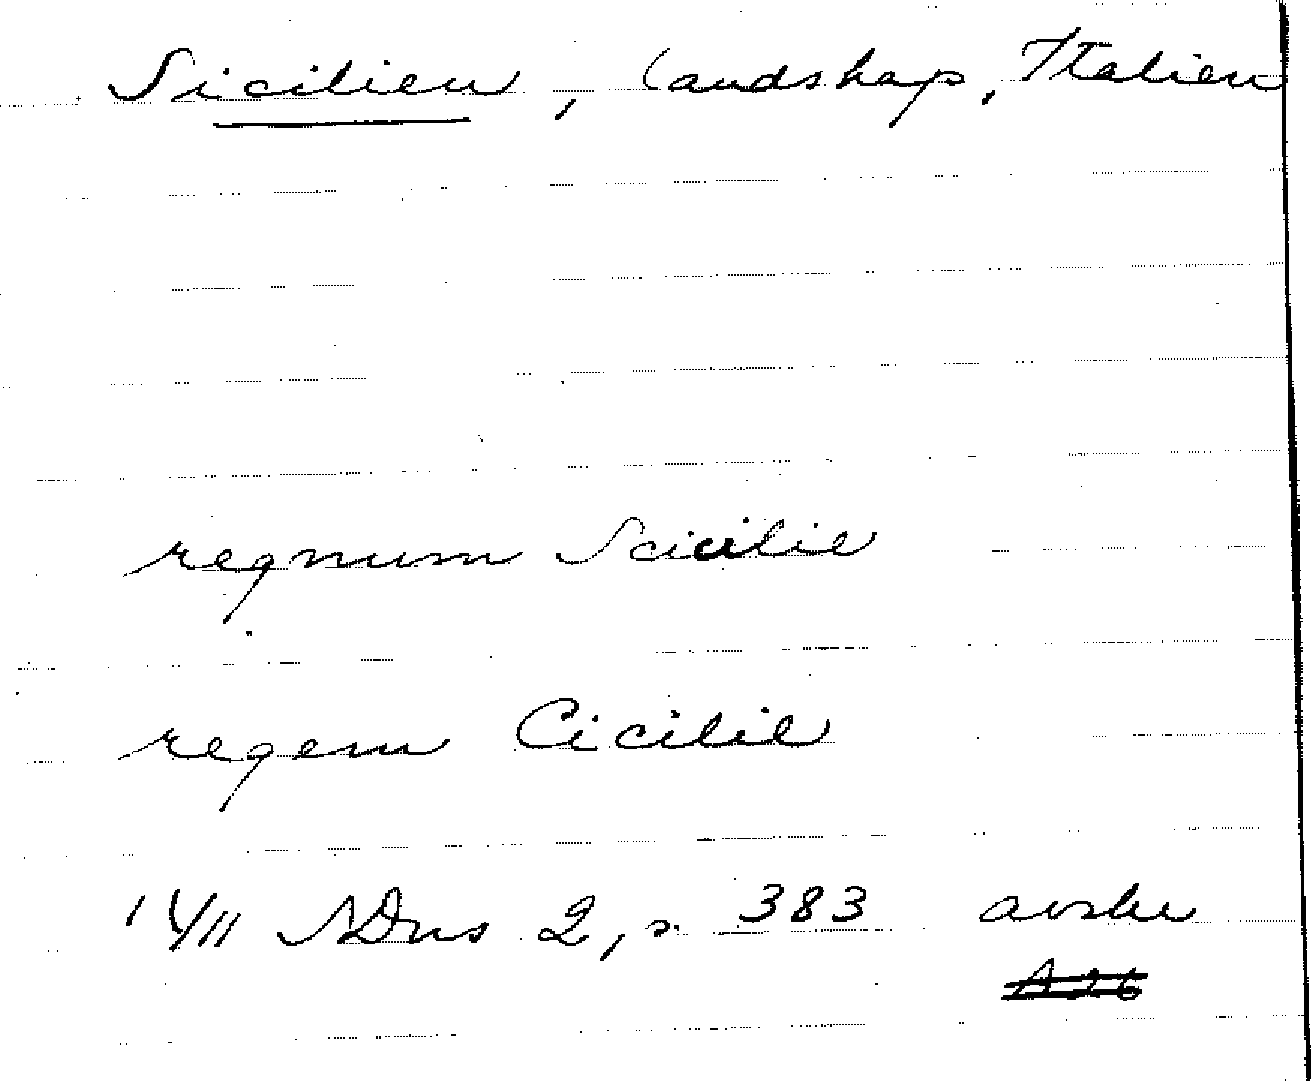 Sicilien, landskap, Italien
regnum Scicilie
regem Cicilie
SDns 2, s. 383 avskr